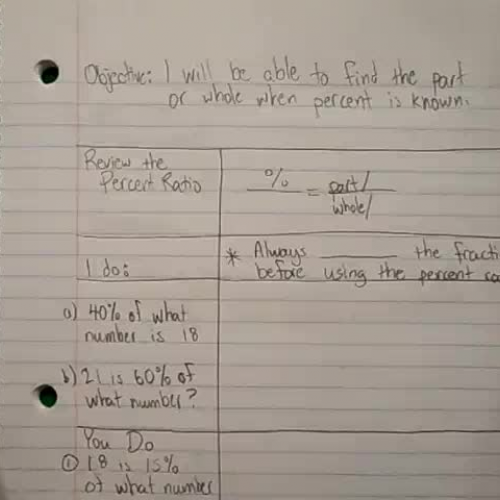 Objective: I will be able to find the part
or whole when percent is known.
Review the
Percent Ratio
% = part/
whole/
I do:
* Always ______ the fracti
before using the percent
a) 40% of what
number is 18
b) 21 is 60% of
what number?
You Do
① 18 is 15%
of what number